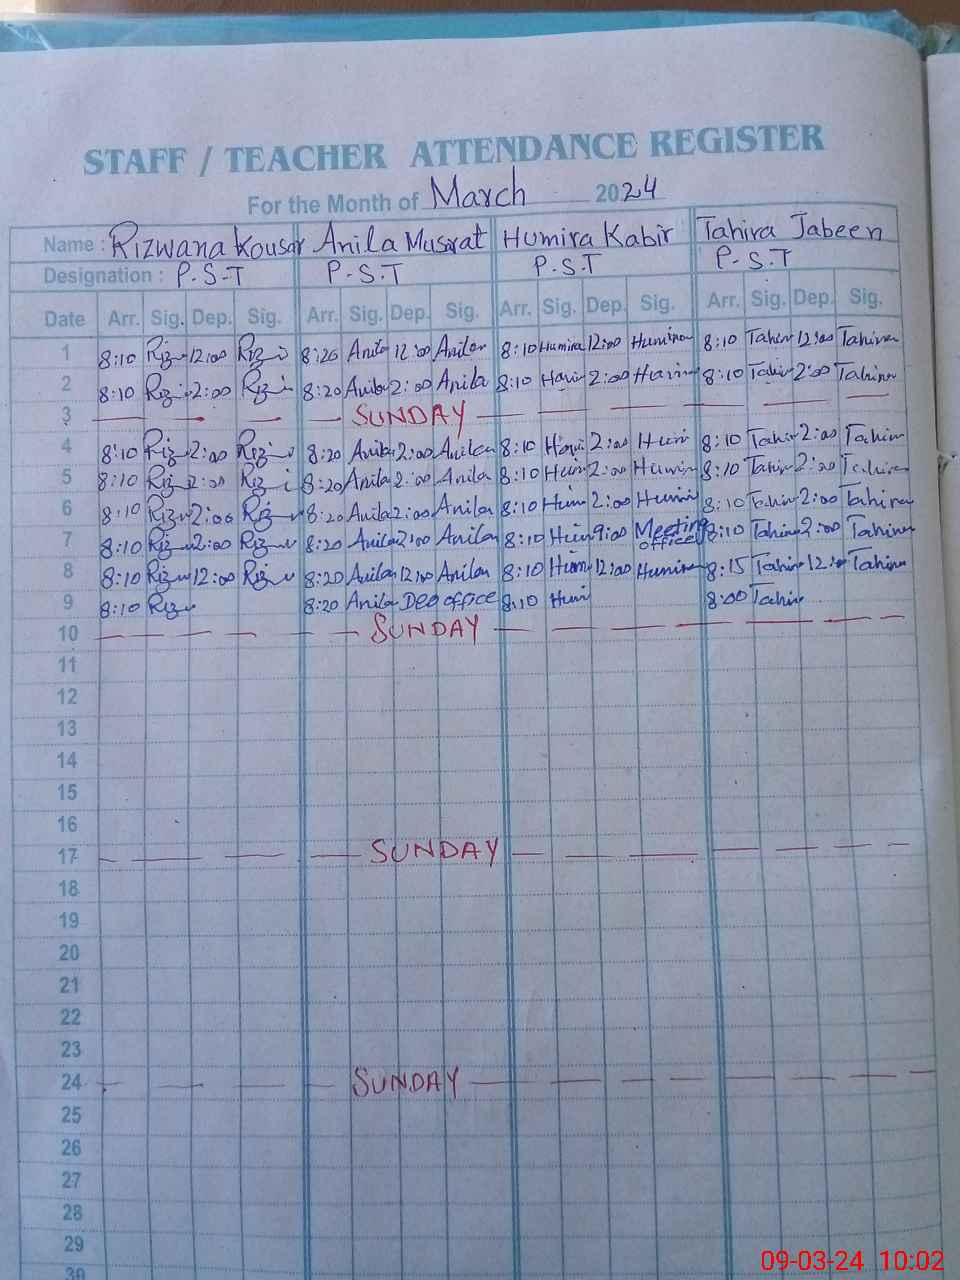 STAFF / TEACHER ATTENDANCE REGISTER
For the Month of March 2024
Name : Rizwana Kousar Anila Musarat Humira Kabir Tahira Jabeen
Designation : P.S.T P.S.T P.S.T P.S.T
Date Arr. Sig. Dep. Sig. Arr. Sig. Dep. Sig. Arr. Sig. Dep. Sig. Arr. Sig. Dep. Sig.
1 8:10 12:00 8:20 Anila 12:00 Anila 8:10 Humira 12:00 Humira 8:10 Tahir 12:00 Tahira
2 8:10 2:00 8:20 Anila 2:00 Anila 8:10 2:00 8:10 Tahir 2:00 Tahira
3 SUNDAY
4 8:10 2:00 8:20 Anila 2:00 Anila 8:10 2:00 Hum 8:10 Tahir 2:00 Tahir
5 8:10 2:00 8:20 Anila 2:00 Anila 8:10 Hum 2:00 8:10 Tahir 2:00 Tahira
6 8:10 2:00 8:20 Anila 2:00 Anila 8:10 Hum 2:00 8:10 Tahir 2:00 Tahira
7 8:10 2:00 8:20 Anila 2:00 Anila 8:10 Hum 9:00 Meeting office 8:10 Tahir 2:00 Tahira
8 8:10 12:00 8:20 Anila 12:00 Anila 8:10 Hum 12:00 Humira 8:15 Tahir 12:00 Tahira
9 8:10 8:20 Anila DEO office 8:10 Hum 8:00 Tahir
10 SUNDAY
11
12
13
14
15
16
17 SUNDAY
18
19
20
21
22
23
24 SUNDAY
25
26
27
28
29
30
09-03-24 10:02